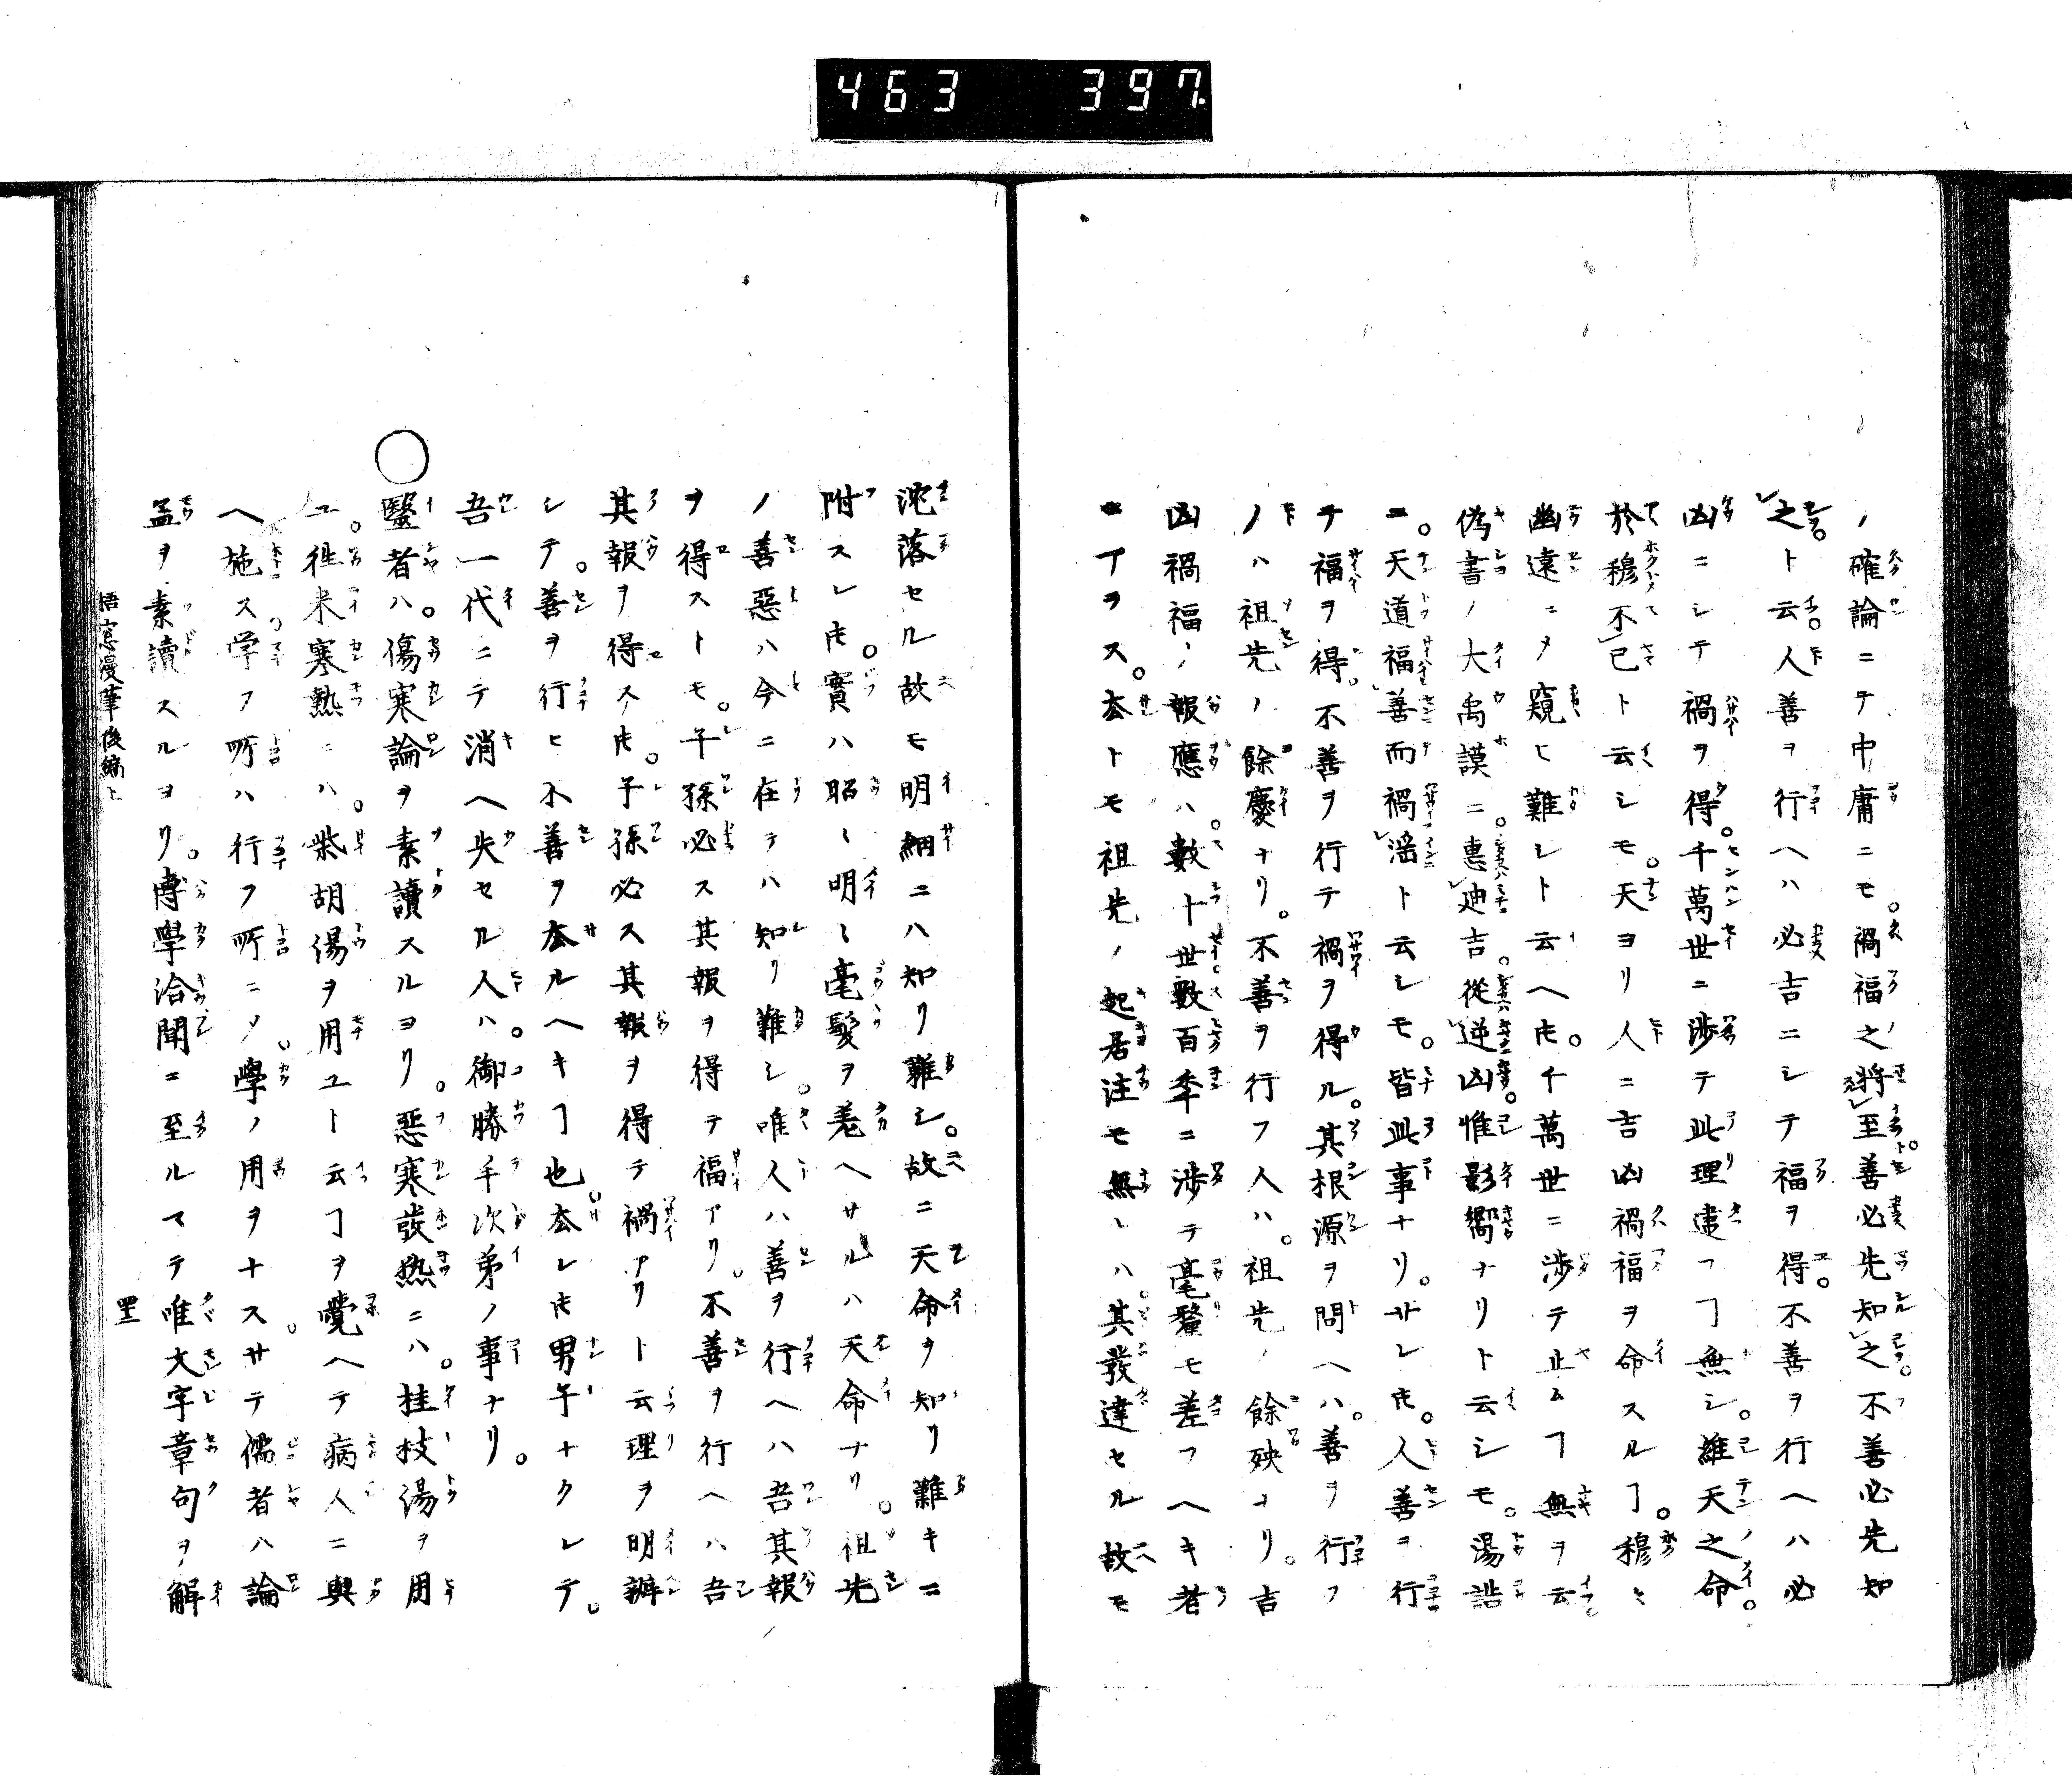 463 397
ノ確論ニテ中庸ニモ。禍福之將至善必先知之不善必先知
之。ト云。人善ヲ行ヘハ必吉ニシテ福ヲ得。不善ヲ行ヘハ必
凶ニシテ禍ヲ得。千萬世ニ渉テ此理違フヿ無シ。維天之命。
於穆不已ト云シモ。天ヨリ人ニ吉凶禍福ヲ命スルヿ。穆々
幽遠ニメ窺ヒ難シト云ヘ𪜈。千萬世ニ渉テ止ムヿ無ヲ云
偽書ノ大禹謨ニ。惠迪吉。從逆凶。惟影嚮ナリト云シモ。湯誥
ニ。天道福善而禍淫ト云シモ。皆此事ナリ。サレ𪜈。人善ヲ行
テ福ヲ得。不善ヲ行テ禍ヲ得ル。其根源ヲ問ヘハ。善ヲ行フ
ノハ祖先ノ餘慶ナリ。不善ヲ行フ人ハ。祖先ノ餘殃ナリ。吉
凶禍福ノ報應ハ。數十世數百年ニ渉テ毫釐モ差フヘキ者
ニアラス。夲トモ祖先ノ起居注モ無レハ。其發達セル故モ
沱落セル故モ明細ニハ知リ難シ。故ニ天命ヲ知リ難キニ
附スレ𪜈。實ハ昭〻明〻毫髮ヲ差ヘサルハ天命ナリ。祖先
ノ善惡ハ今ニ在テハ知リ難シ。唯人ハ善ヲ行ヘハ吾其報
ヲ得ストモ。子孫必ス其報ヲ得テ福アリ。不善ヲ行ヘハ吾
其報ヲ得ス𪜈。子孫必ス其報ヲ得テ禍アリト云理ヲ明辨
シテ。善ヲ行ヒ不善ヲ去ルヘキヿ也。去レ𪜈男子ナクレテ。
吾一代ニテ消ヘ失セル人ハ。御勝手次弟ノ事ナリ。
○醫者ハ。傷寒論ヲ素讀スルヨリ。惡寒發熱ニハ。桂枝湯ヲ用
ユ。徃來寒熱ニハ。柴胡湯ヲ用ユト云ヿヲ覺ヘテ病人ニ與
ヘ施ス学フ所ハ行フ所ニメ。學ノ用ヲナス。サテ儒者ハ論
孟ヲ素讀スルヨリ。博學洽聞ニ至ルマテ唯大字章句ヲ解
梧窓漫筆後編上